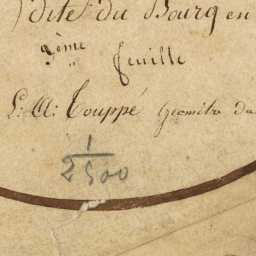 dite du Bourg en
2ème feuille
L: A: Touppé Géomètre du
1
2500